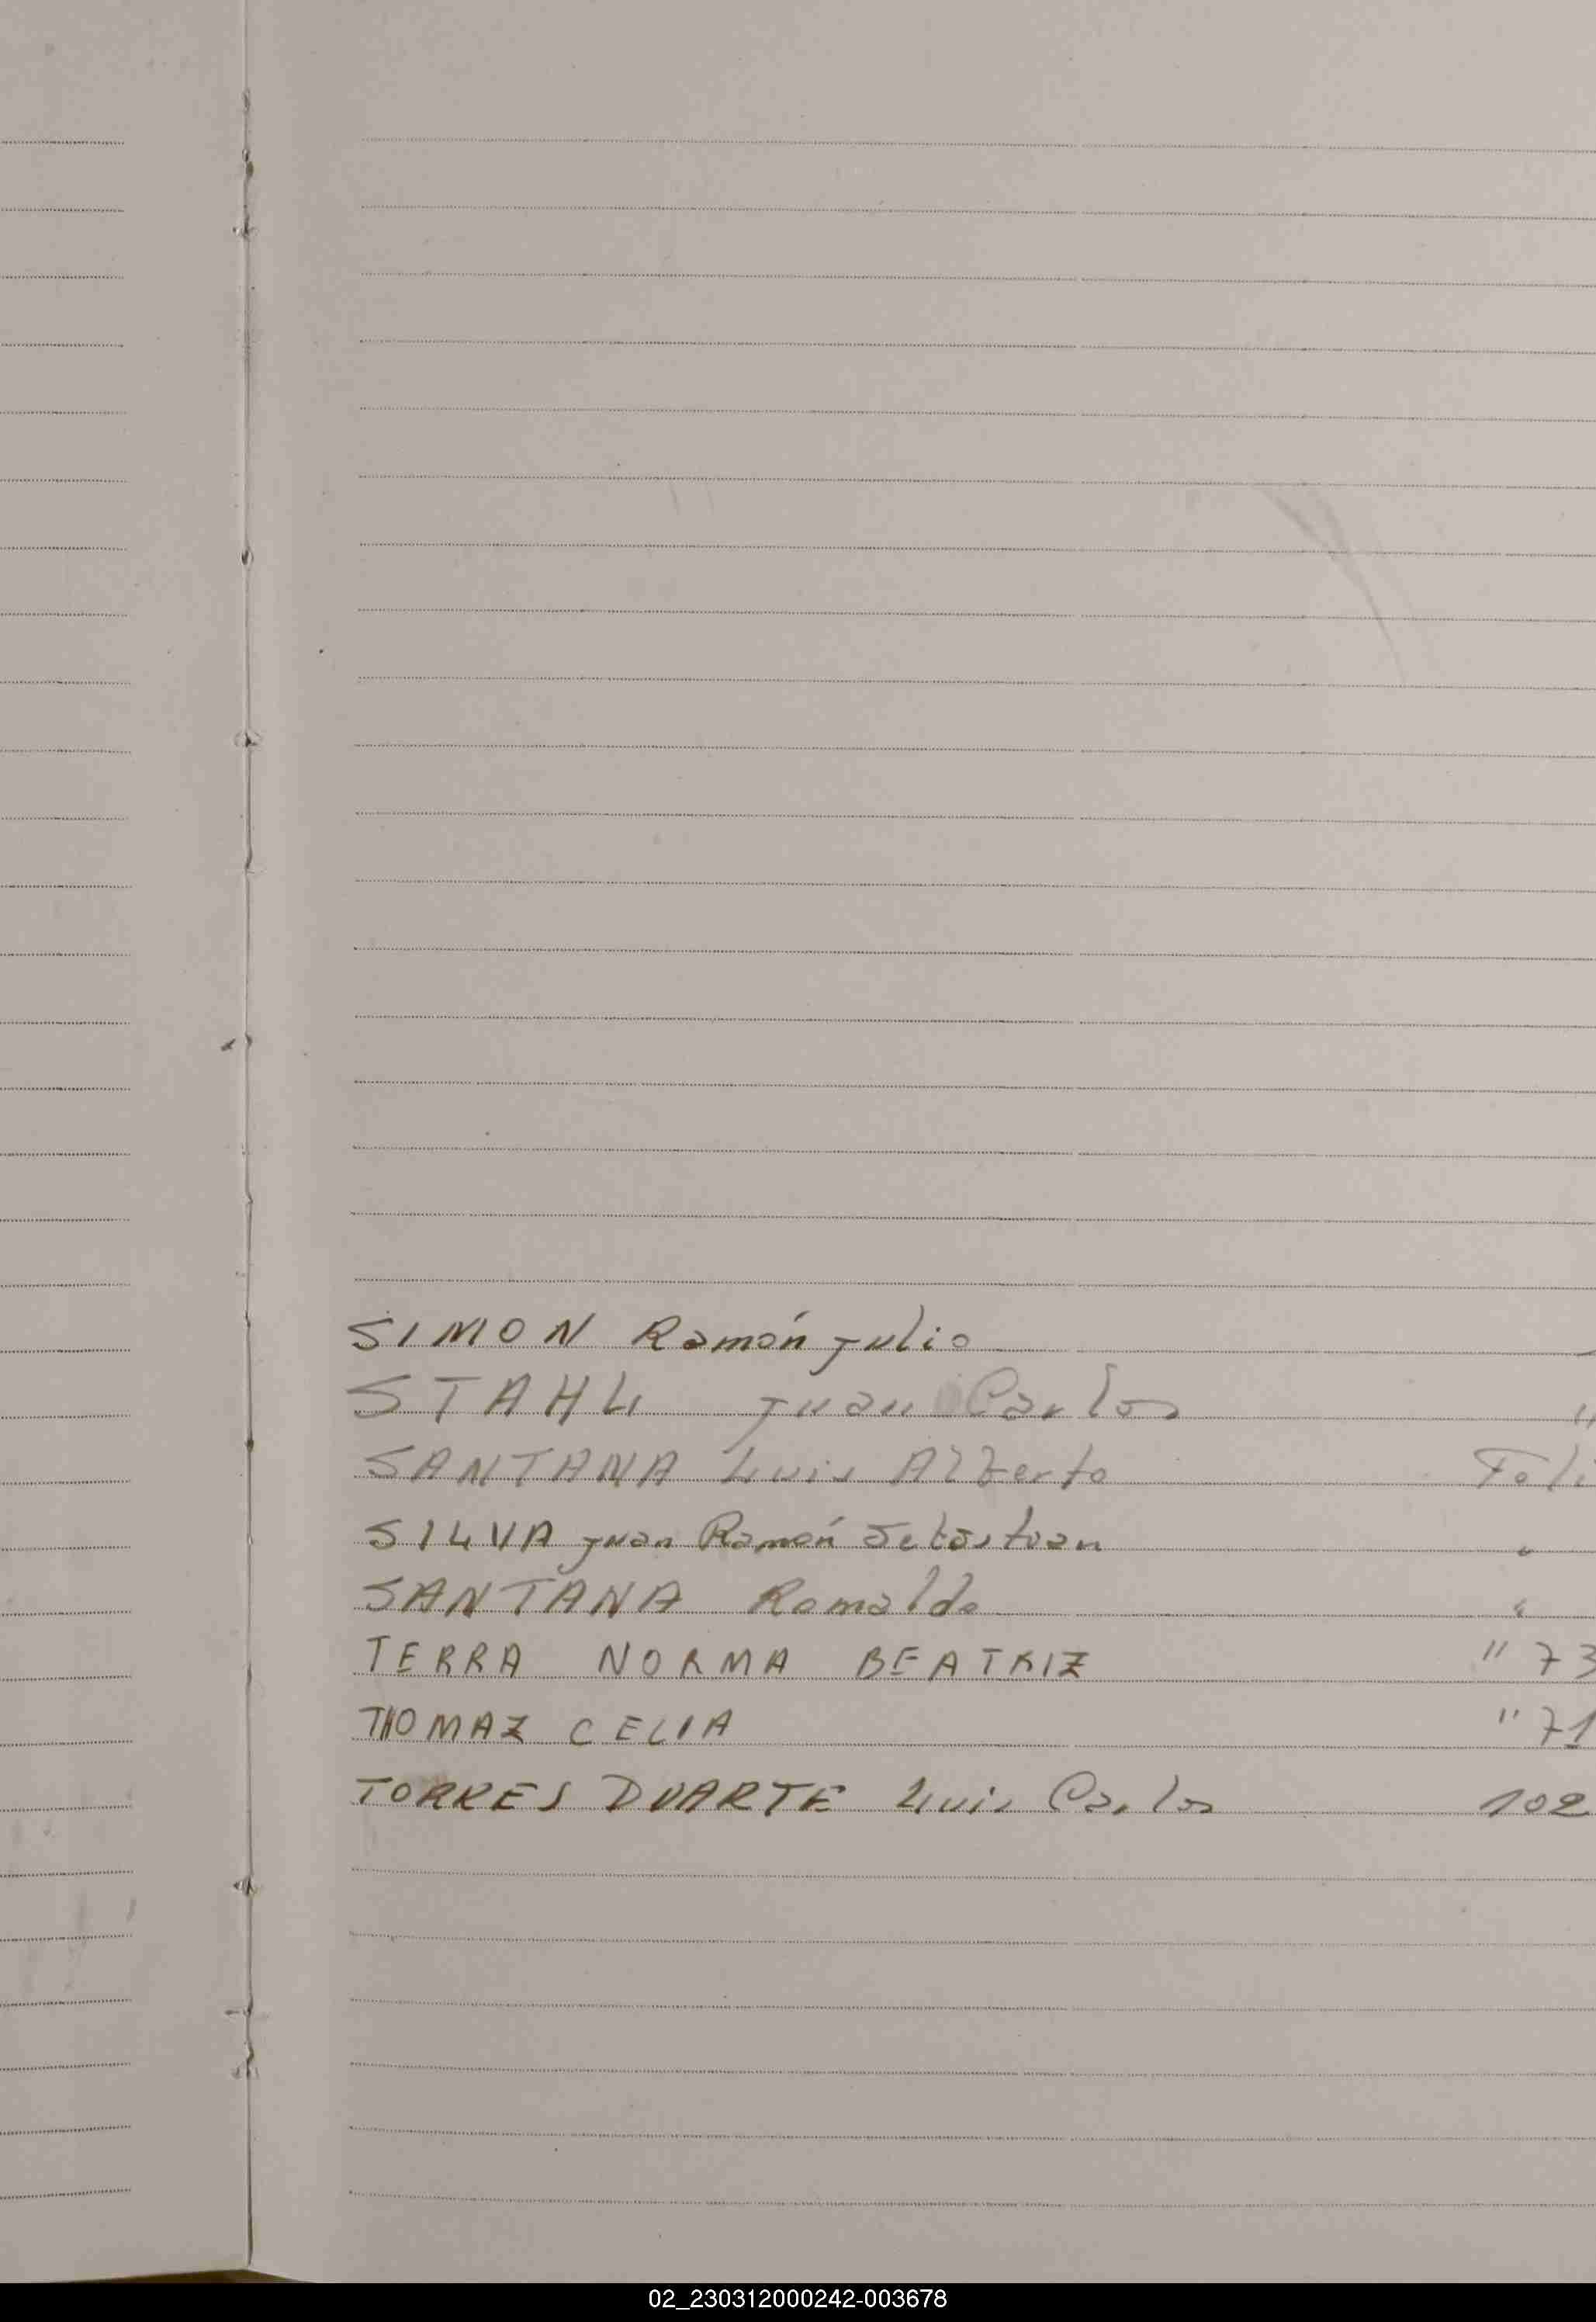 SIMON Ramón Julio
STAHL Juan Carlos "
SANTANA Luis Alberto Foli
SILVA Juan Ramón Sebastian "
SANTANA Romaldo "
TERRA NORMA BEATRIZ " 73
THOMAZ CELIA " 71
TORRES DUARTE Luis Carlos 102
02_230312000242-003678